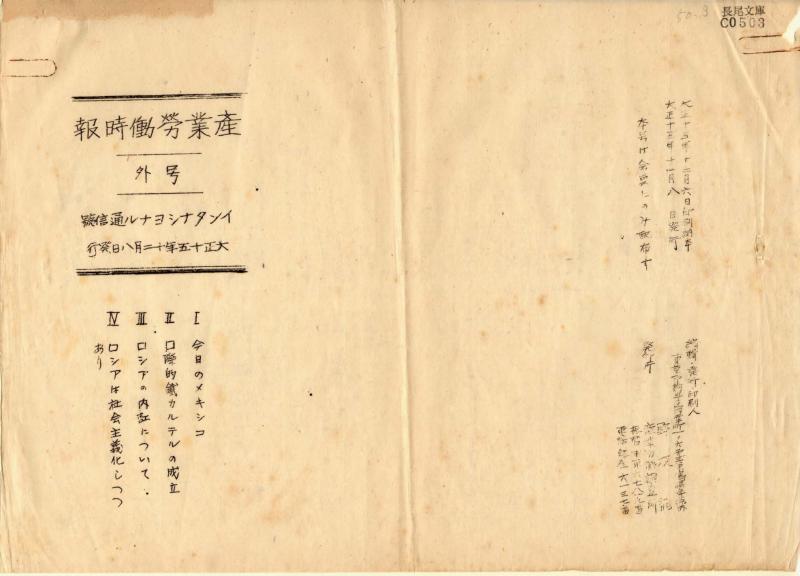 産業労働時報
号外
インタナシヨナル通信號
大正十五年十二月八日発行
I 今日のメキシコ
II 口際的鉄カルテルの成立
III ロシアの内訌について.
IV ロシアは社会主義化しつつ
あり
50.3
長尾文庫
C0503
大正十五年十二月六日印刷納本
大正十五年十二月八 日発行
本号は会員にのみ配布す
編輯・発行印刷人
発行所